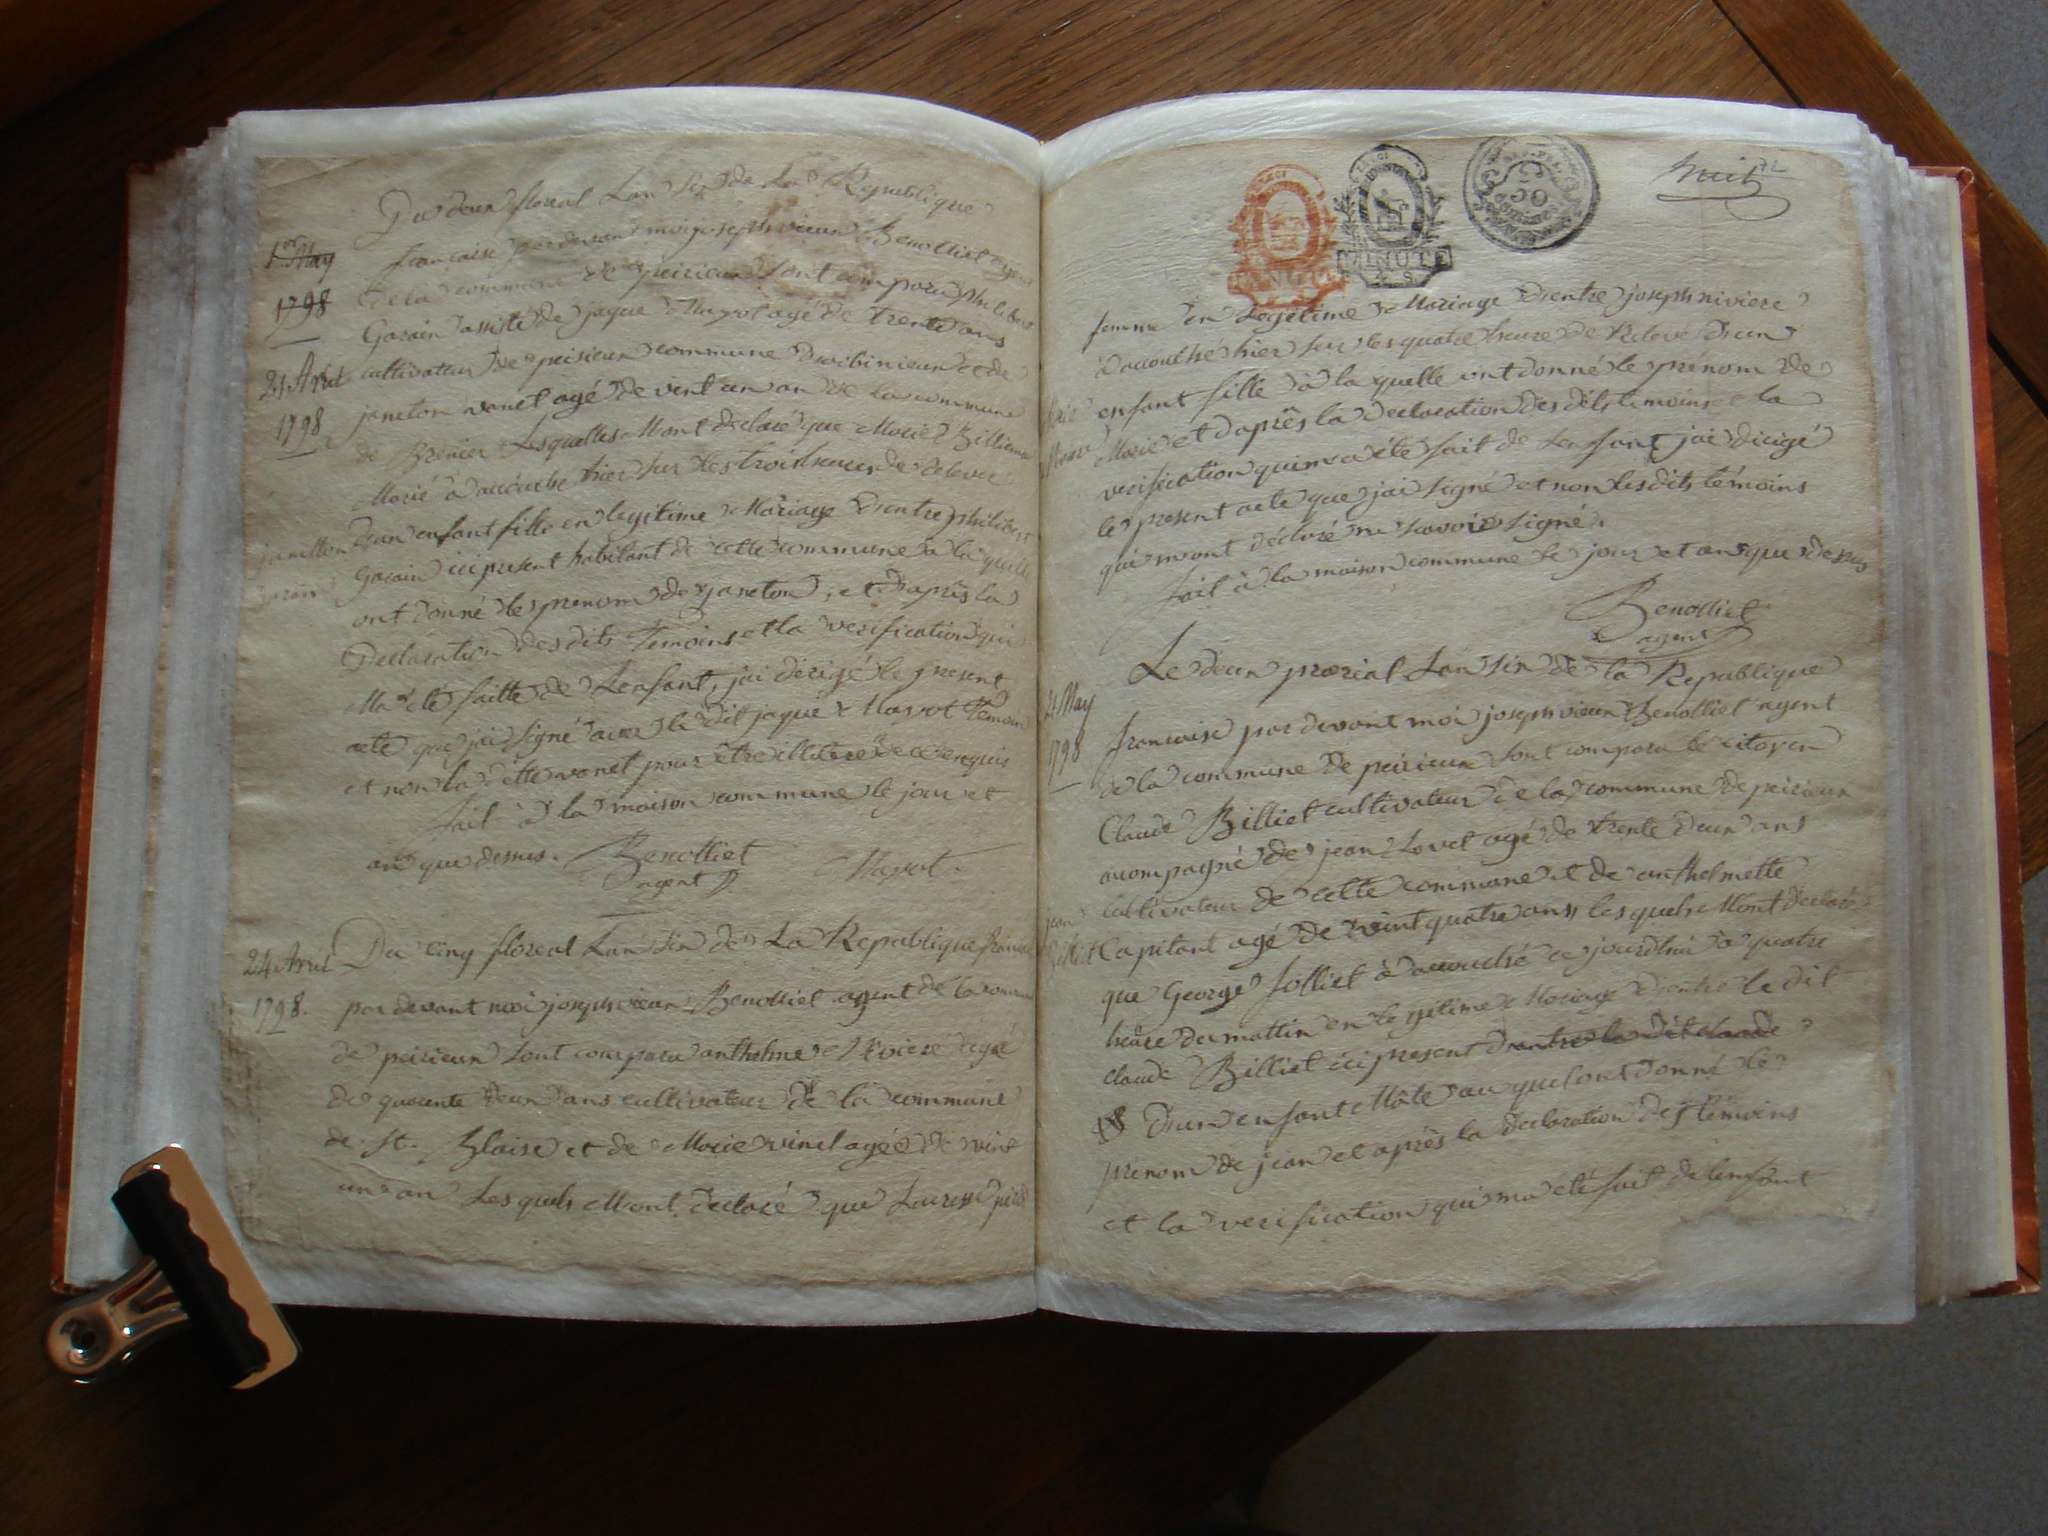 Du deux floreal Lan six de La Republique
francaise par devant moi joseph vieux Benolliet agent
de la commune de peirieux sont comparu philibert
Garain assisté de jaque Mayot agé de trente ans
cultivateur de peirieux commune et de
janeton vanet agé de vent un an de la commune
de Brenier Lesquelles Mont declaré que
Marie à accouché hier sur les trois heures de relevé
Dun enfant fille en legitime Mariage Dentre philibert
Garain ici present habitant de cette commune a la quelle
ont donné le prenom de janeton, et d'après la
Declaration des dits Temoins et la verification qui
Ma eté faitte de Lenfant, jai dérigé le present
acte que jai signé avec le dit jaque Mayot Temoin
et non la ditte vanet pour être illitere de ce enquis
fait à la maison commune le jour et
an que dessus. Benolliet
agent
Mayot.
1er May
1798
21 Avril
1798
janetton
Du cinq floreal Lan six de La Republique francaise
par devant moi joseph vieux Benolliet agent de la commune
de peirieux sont comparu anthelme Niviere agé
de quarente deux ans cultivateur de la commune
de St. Blaise et de Marie vinel agée de vint
un an Les quels Mont declaré que
24 Avril
1798.
huit
MINUTE
4 S
femme en Legitime Mariage Dentre joseph niviere
à accouché hier sur les quatre heure de Relevé Dun
enfant fille à la quelle ont donné le prénom de
Marie et daprês la declaration des dits temoins et la
verification qui ma eté fait de Lenfant jai dirigé
le present acte que jai signé et non les dits témoins
qui mont déclaré ne savoir signé.
fait à la maison commune le jour et an que dessus
Benolliet
agent
Le deux prærial Lan six de la Republique
francoise par devant moi joseph vieux Benolliet agent
de la commune de peirieux sont comparu le citoyen
Claude Billiet cultivateur de la commune de peirieux
acompagné de jean Lovet agé de trente deux ans
cultivateur de cette commune et de anthelmette
Capitant agé de vint quatre ans les quels Mont declaré
que George Jolliet à accouché ce jourdhui à quatre
heure du mattin en legitime Mariage Dentre le dit
claude Billiet ici present dentre le dit claude
Dun enfant Mâle au quel ont Donné le
prenom de jean et aprês la declaration des témoins
et la verification qui ma eté fait de lenfant
21 May
1798
jean
Billiet